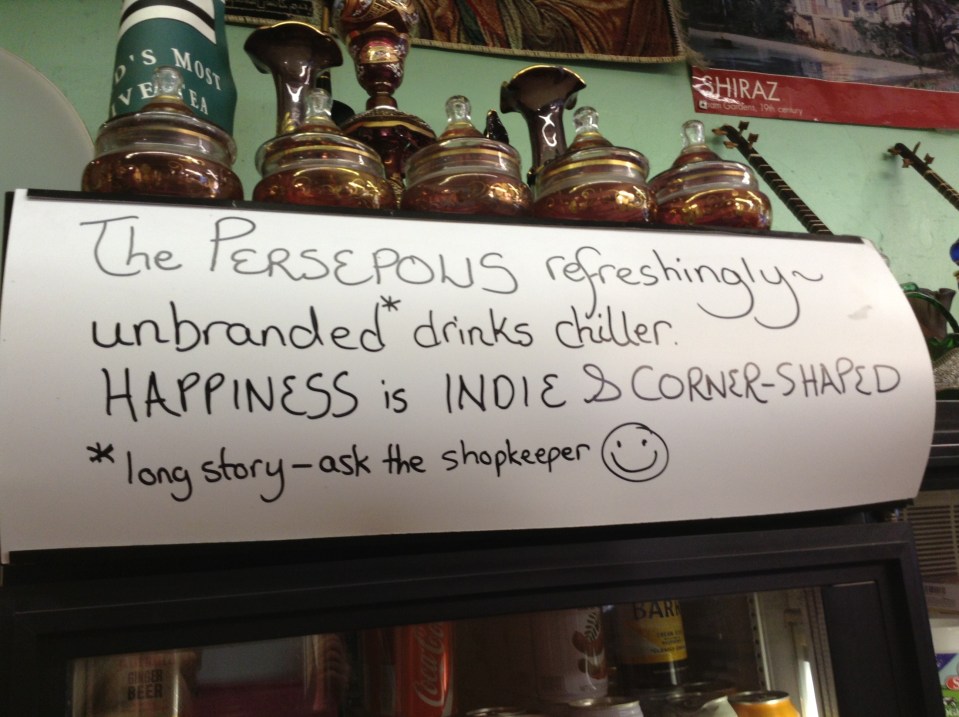 D'S MOST
SHIRAZ
The PERSEPOLIS refreshingly~
unbranded* drinks chiller.
HAPPINESS is INDIE & CORNER-SHAPED
*long story – ask the shopkeeper
GINGER
BEER
Coca-Cola
BARR